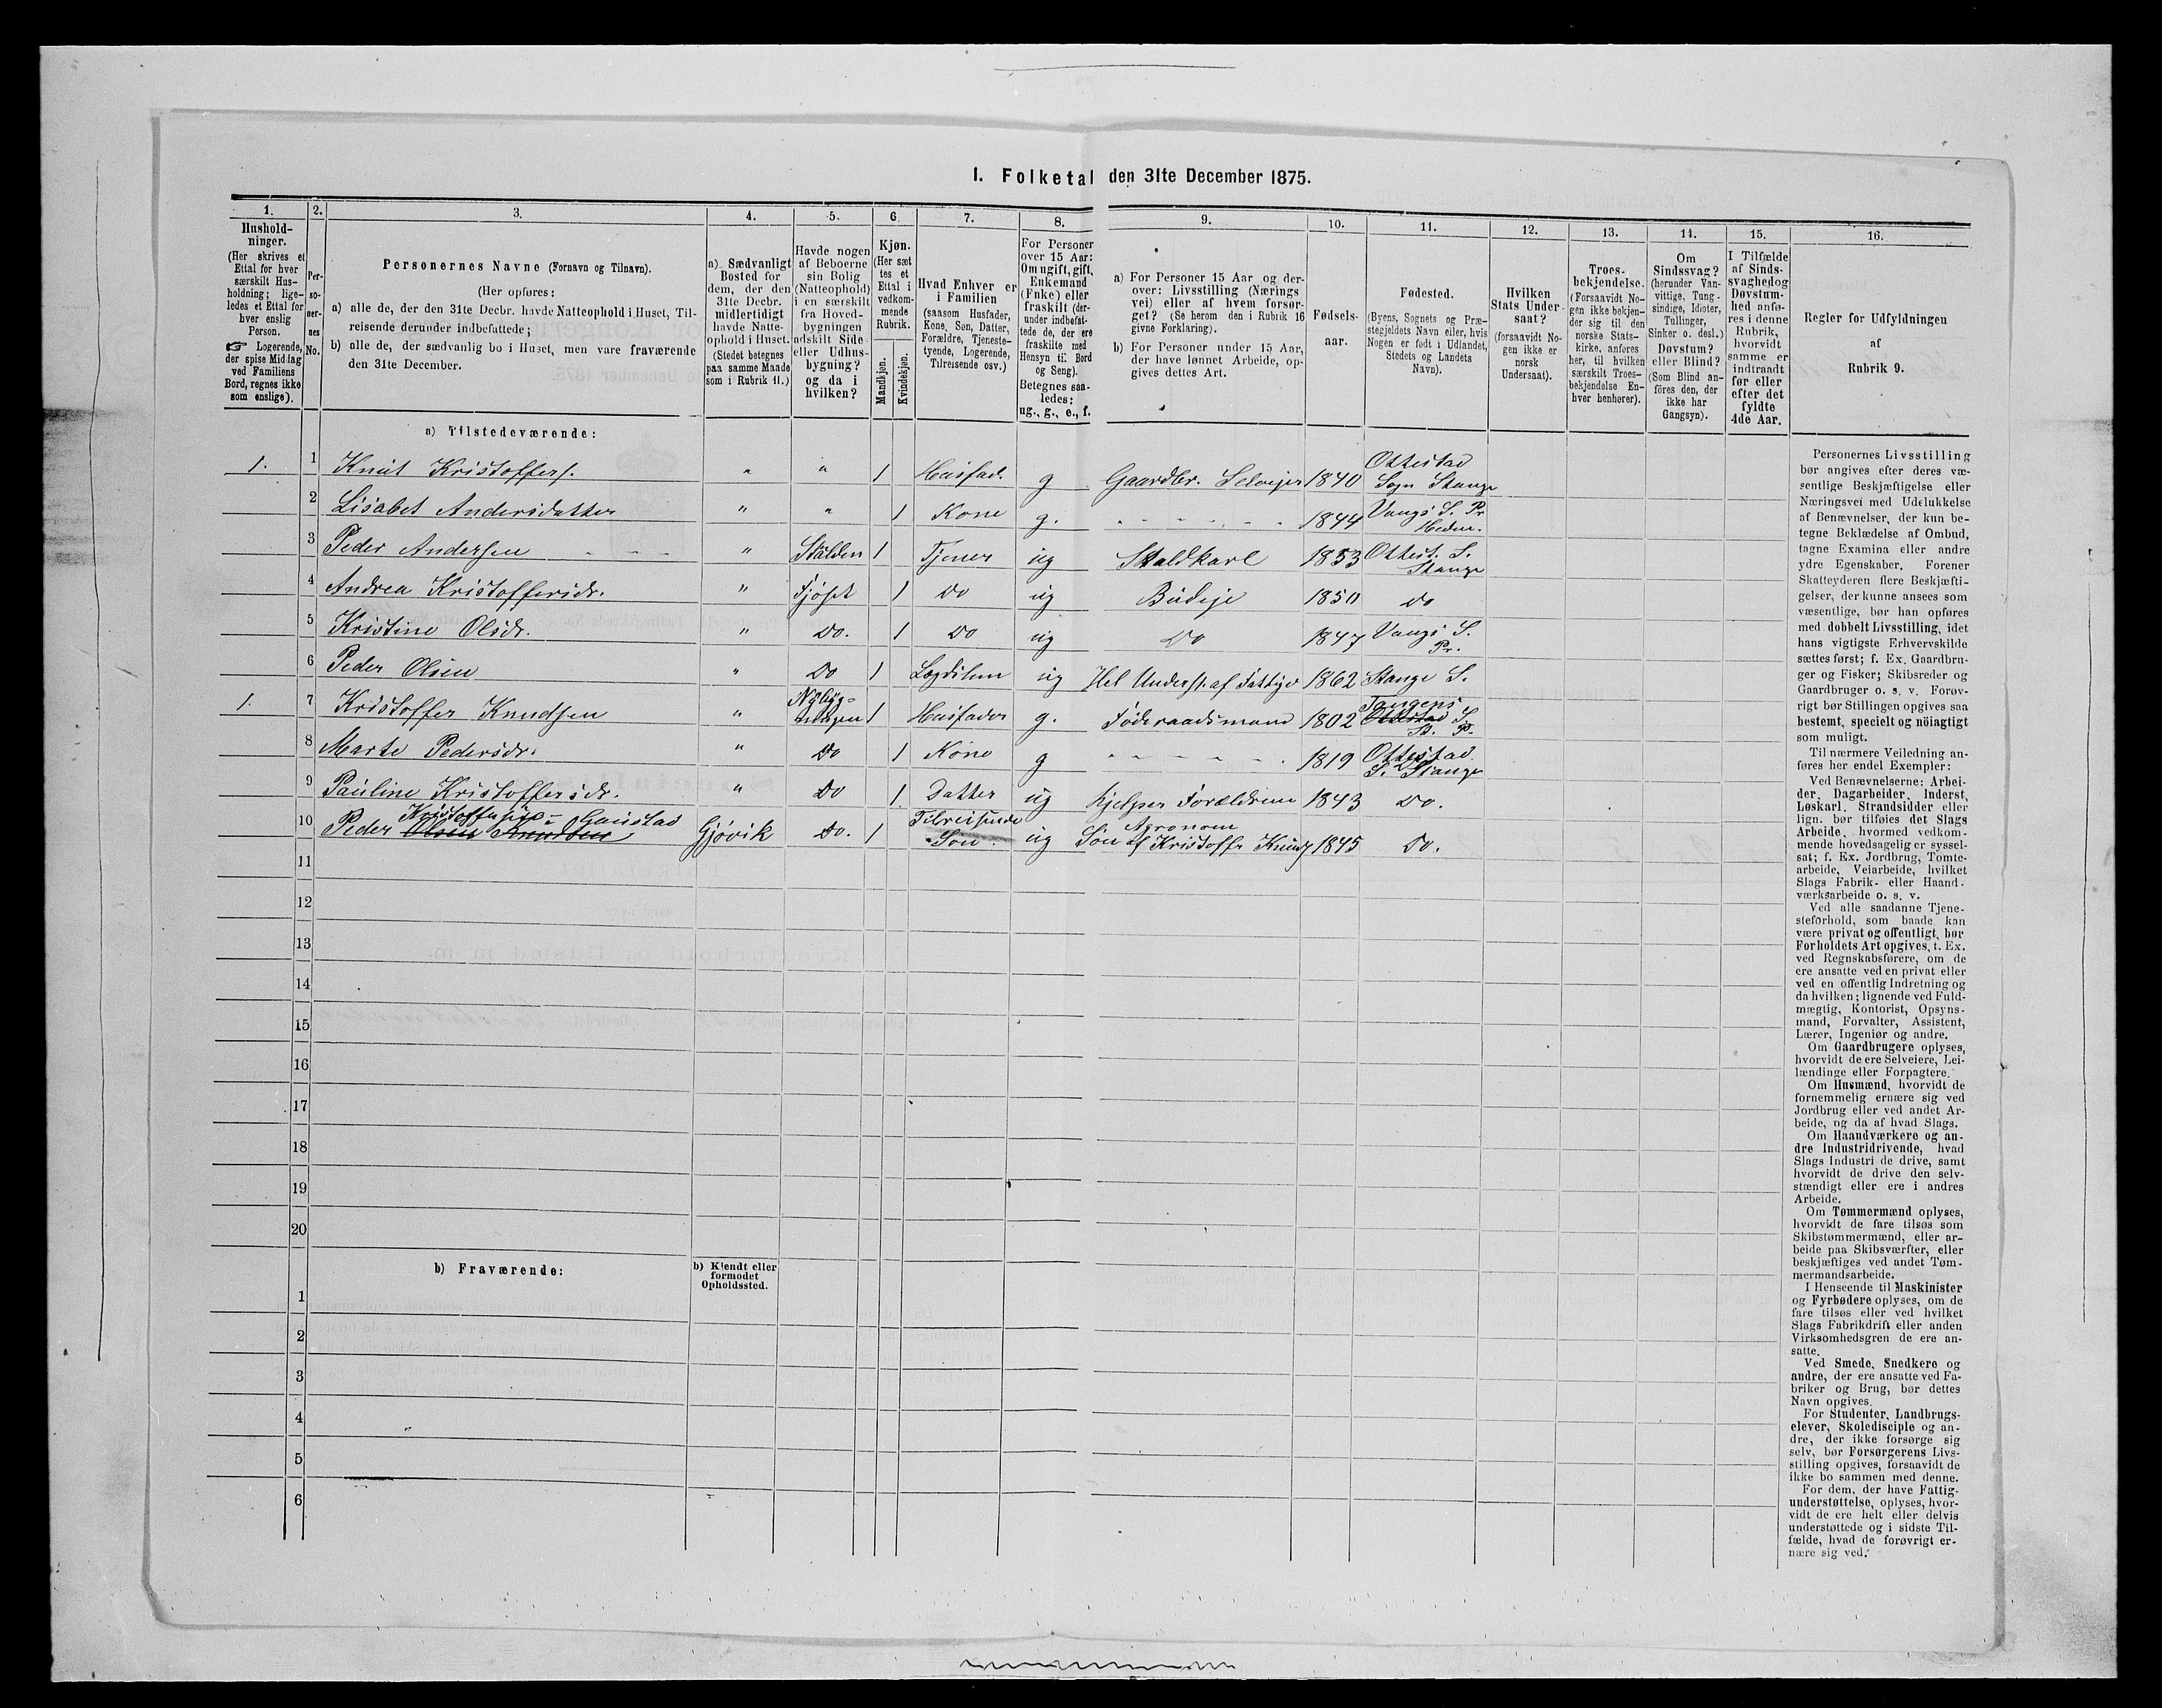 I. Folketal den 31te December 1875.
1.
Hushold-
ninger.
(Her skrives et
Ettal for hver
særskilt Hus-
holdning; lige-
ledes et Ettal for
hver enslig
Person.
☞ Logerende,
der spise Middag
ved Familiens
Bord, regnes ikke
som enslige).
2.
Per-
so-
ner-
nes
No.
3.
Personernes Navne (Fornavn og Tilnavn).
(Her opføres:
a) alle de, der den 31te Decbr. havde Natteophold i Huset, Til-
reisende derunder indbefattede;
b) alle de, der sædvanlig bo i Huset, men vare fraværende
den 31te December.
4.
a) Sædvanligt
Bosted for
dem, der den
31te Decbr.
midlertidigt
havde Natte-
ophold i Huset.
(Stedet betegnes
paa samme Maade
som i Rubrik 11.)
5.
Havde nogen
af Beboerne
sin Bolig
(Natteophold)
i en særskilt
fra Hoved-
bygningen
adskilt Side-
eller Udhus-
bygning?
og da i
hvilken?
6.
Kjøn.
(Her sæt
tes et
Ettal i
vedkom-
mende
Rubrik.
Mandkjøn.
Kvindekjøn.
7.
Hvad Enhver er
i Familien
(saasom Husfader,
Kone, Søn, Datter,
Forældre, Tjeneste-
tyende, Logerende,
Tilreisende osv.)
8.
For Personer
over 15 Aar:
Om ugift, gift,
Enkemand
(Enke) eller
fraskilt (der-
under indbefat-
tede de, der ere
fraskilte med
Hensyn til Bord
og Seng).
Betegnes saa-
ledes:
ug., g., e., f.
9.
a) For Personer 15 Aar og der-
over: Livsstilling (Nærings
vei) eller af hvem forsør-
get? (Se herom den i Rubrik 16
givne Forklaring).
b) For Personer under 15 Aar,
der have lønnet Arbeide, op-
gives dettes Art.
10.
Fødsels-
aar.
11.
Fødested.
(Byens, Sognets og Præ-
stegjeldets Navn eller, hvis
Nogen er født i Udlandet,
Stedets og Landets
Navn).
12.
Hvilken
Stats Under-
saat?
(forsaavidt No-
gen ikke er
norsk
Undersaat).
13.
Troes-
bekjendelse.
(Forsaavidt No-
gen ikke bekjen-
der sig til den
norske Stats-
kirke, anføres
her, til hvilken
særskilt Troes-
bekjendelse En-
hver henhører).
14.
Om
Sindssvag?
(herunder Van-
vittige, Tung-
sindige, Idioter,
Tullinger,
Sinker o. desl.)
Døvstum?
eller Blind?
(Som Blind an-
föres den, der
ikke har
Gangsyn).
15.
I Tilfælde
af Sinds-
svaghed og
Døvstum-
hed anfø-
res i denne
Rubrik,
hvorvidt
samme er
indtraadt
før eller
efter det
fyldte
4de Aar.
16.
Regler for Udfyldningen
af
Rubrik 9.
a) Tilstedeværende:
1. 1 Knut Kristoffers. " " 1 Husfad. g Gaardbr. Selveier 1840 Ottestad
Sogn Stange
2 Lisabet Andersdatter " " 1 Kone g. 1844 Vangs S. Pr
Hedm.
3 Peder Andersen " Stalden 1 Tjener ug Staldkarl 1853 Ottest. S.
Stange
4 Andrea Kristoffersdr. " Fjøset 1 Do ug Budeje 1850 Do
5 Kristine Olsdr. " Do. 1 Do ug Do 1847 Vangs S.
Pr.
6 Peder Olsen " Do 1 Lægdslem ug Hel Underst. af Fattigv 1862 Stange S.
1. 7 Kristoffer Knudsen " Nybyg-
ningen 1 Husfader g. Føderaadsmand 1802 Tangens
Ottestad S.
St. P.
8 Marte Pedersdr. " Do 1 Kone g 1819 Ottestad
S. Stange
9 Pauline Kristoffersdr. " Do 1. Datter ug hjelper Forældrene 1843 Do.
Kristoffersen Gaustad Tilreisende Agronom
10 Peder Olsen Knudsen Gjøvik Do. 1 Søn. ug Søn af Kristoffr Knuds 1845 Do.
11
12
13
14
15
16
17
18
19
20
b) Fraværende:
b) Kjendt eller
formodet
Opholdssted.
1
2
3
4
5
6
Personernes Livsstilling
bør angives efter deres væ-
sentlige Beskjæftigelse eller
Næringsvei med Udelukkelse
af Benævnelser, der kun be-
tegne Beklædelse af Ombud,
tagne Examina eller andre
ydre Egenskaber. Forener
Skatteyderen flere Beskjæfti-
gelser, der kunne ansees som
væsentlige, bør han opføres
med dobbelt Livsstilling, idet
hans vigtigste Erhvervskilde
sættes først; f. Ex. Gaardbru-
ger og Fisker; Skibsreder og
Gaardbruger o. s. v. Forøv-
rigt bør Stillingen opgives saa
bestemt, specielt og nöiagtigt
som muligt.
Til nærmere Veiledning an-
føres her endel Exempler:
Ved Benævnelserne: Arbei-
der, Dagarbeider, Inderst,
Løskarl, Strandsidder eller
lign. bør tilføies det Slags
Arbeide, hvormed vedkom-
mende hovedsagelig er syssel-
sat; f. Ex. Jordbrug, Tomte-
arbeide, Veiarbeide, hvilket
Slags Fabrik- eller Haand-
værksarbeide o. s. v.
Ved alle saadanne Tjene-
steforhold, som baade kan
være privat og offentligt, bør
Forholdets Art opgives, t. Ex.
ved Regnskabsførere, om de
ere ansatte ved en privat eller
ved en offentlig Indretning og
da hvilken; lignende ved Fuld-
mægtig, Kontorist, Opsyns-
mand, Forvalter, Assistent,
Lærer, Ingeniør og andre.
Om Gaardbrugere oplyses,
hvorvidt de ere Selveiere, Lei-
lændinge eller Forpagtere.
Om Husmænd, hvorvidt de
fornemmelig ernære sig ved
Jordbrug eller ved andet Ar-
beide, og da af hvad Slags.
Om Haandværkere og an-
dre Industridrivende, hvad
Slags Industri de drive, samt
hvorvidt de drive den selv-
stændigt eller ere i andres
Arbeide.
Om Tømmermænd oplyses,
hvorvidt de fare tilsøs som
Skibstømmermænd, eller ar-
beide paa Skibsværfter, eller
beskjæftiges ved andet Tøm-
mermandsarbeide.
I Henseende til Maskinister
og Fyrbødere oplyses, om de
fare tilsøs eller ved hvilket
Slags Fabrikdrift eller anden
Virksomhedsgren de ere an-
satte.
Ved Smede, Snedkere og
andre, der ere ansatte ved Fa-
briker og Brug, bør dettes
Navn opgives.
For Studenter, Landbrugs-
elever, Skoledisciple og an-
dre, der ikke forsørge sig
selv, bør Forsørgerens Livs-
stilling opgives, forsaavidt de
ikke bo sammen med denne.
For dem, der have Fattig-
understøttelse, oplyses, hvor-
vidt de ere helt eller delvis
understøttede og i sidste Til-
fælde, hvad de forøvrigt er-
nære sig ved.